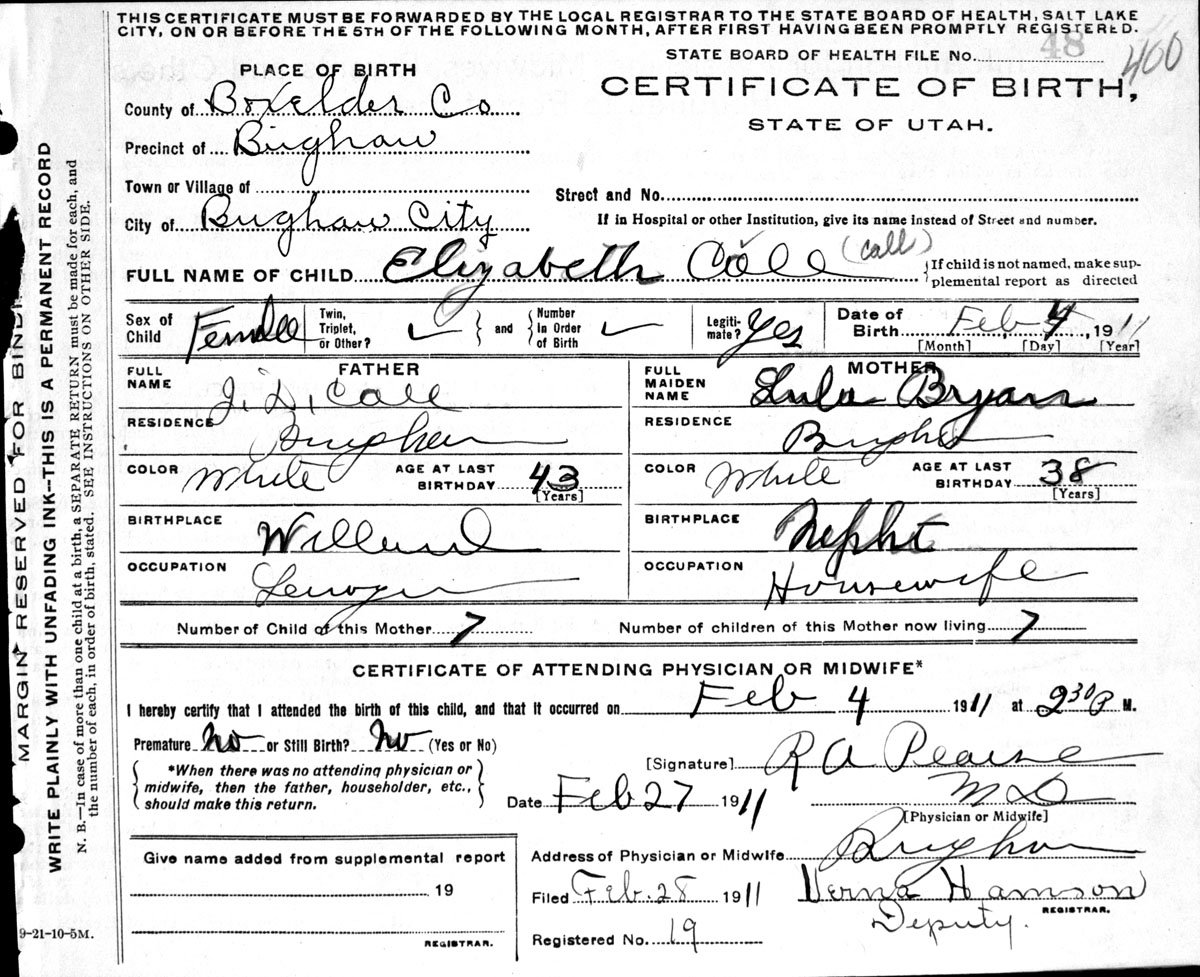 THIS CERTIFICATE MUST BE FORWARDED BY THE LOCAL REGISTRAR TO THE STATE BOARD OF HEALTH, SALT LAKE
CITY, ON OR BEFORE THE 5TH OF THE FOLLOWING MONTH, AFTER FIRST HAVING BEEN PROMPTLY REGISTERED.
STATE BOARD OF HEALTH FILE No. 48 400
PLACE OF BIRTH
CERTIFICATE OF BIRTH,
STATE OF UTAH.
County of Boxelder Co
Precinct of Brigham
Town or Village of
Street and No.
City of Brigham City
If in Hospital or other Institution, give its name instead of Street and number.
FULL NAME OF CHILD Elizabeth Call (Call)
{If child is not named, make sup-
plemental report as directed
Sex of Child Female
Twin, Triplet, or Other? ✓ and Number In Order of Birth ✓
Legiti-mate? Yes
Date of Birth Feb 4, 1911
[Month] [Day] [Year]
FATHER
FULL NAME J. D. Call
RESIDENCE Brigham
COLOR White AGE AT LAST BIRTHDAY 43 [Years]
BIRTHPLACE Willard
OCCUPATION
MOTHER
FULL MAIDEN NAME Lula Bryan
RESIDENCE Brigham
COLOR White AGE AT LAST BIRTHDAY 38 [Years]
BIRTHPLACE Nephi
OCCUPATION Housewife
Number of Child of this Mother 7 Number of children of this Mother now living 7
CERTIFICATE OF ATTENDING PHYSICIAN OR MIDWIFE*
I hereby certify that I attended the birth of this child, and that it occurred on Feb 4 1911 at 2 30 P M.
Premature No or Still Birth? No (Yes or No)
*When there was no attending physician or
midwife, then the father, householder, etc.,
should make this return.
[Signature] R A Pearse
M D
[Physician or Midwife]
Date Feb 27 1911
Give name added from supplemental report
19
REGISTRAR.
Address of Physician or Midwife Brigham
Filed Feb. 28 1911 Verna Hamson
REGISTRAR.
Deputy.
Registered No. 19
9-21-10-5M.
MARGIN RESERVED FOR
WRITE PLAINLY WITH UNFADING INK--THIS IS A PERMANENT RECORD
N. B.—In case of more than one child at a birth, a SEPARATE RETURN must be made for each, and
the number of each, in order of birth, stated. SEE INSTRUCTIONS ON OTHER SIDE.